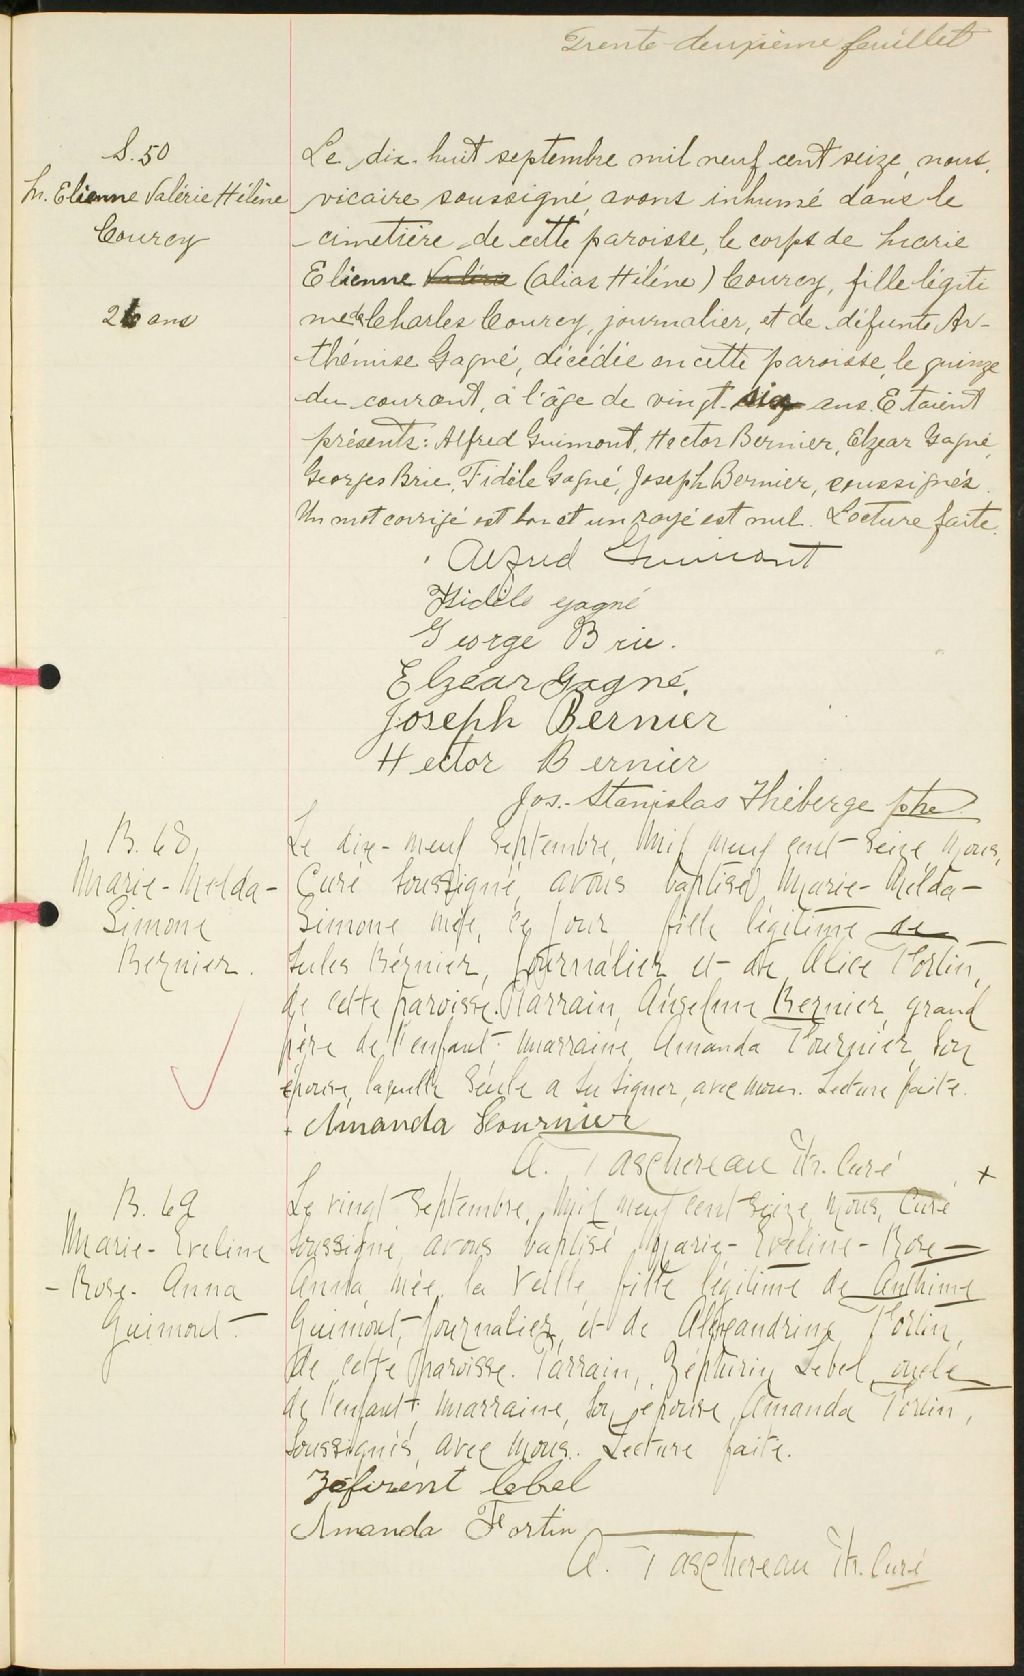 Trente-deuxième feuillet
S. 50
M. Elienne Valérie Hélène
Courcy
26 ans
Le dix-huit septembre mil neuf cent seize, nous,
vicaire soussigné, avons inhumé dans le
cimetière de cette paroisse, le corps de Marie
Elienne Valérie (alias Hélène) Courcy, fille légiti
me de Charles Courcy, journalier, et de défunte Ar-
thémise Gagné, décédée en cette paroisse, le quinze
du courant, à l'âge de vingt-six ans. Etaient
présents: Alfred Guimont, Hector Bernier, Elzear Gagné,
Georges Brie, Fidèle Gagné, Joseph Bernier, soussignés.
Un mot corrigé est bon et un rayé est nul. Lecture faite.
Alfred Guimont
Fidèle gagné
George Brie.
Elzéar Gagné.
Joseph Bernier
Hector Bernier
Jos.-Stanislas Théberge ptre
B. 68
Marie-Melda-
Simone
Bernier.
Le dix-neuf Septembre, Mil neuf cent-seize, nous,
Curé Soussigné, avons baptisé Marie-Melda-
Simone née, ce jour fille légitime de
Jules Bernier, Journalier et de Alice Fortin,
de cette paroisse. Parrain, Anselme Bernier, grand
père de l'enfant. Marraine, Amanda Fournier, Son
épouse, laquelle Seule a Su Signer, avec nous. Lecture faite.
Amanda Fournier
A. Taschereau Ptr. Curé
B. 69
Marie-Eveline
-Rose-Anna
Guimont.
Le vingt Septembre, Mil neuf cent seize, nous, Curé
Soussigné, avons baptisé Marie-Eveline-Rose-
Anna, née, la Veille, fille légitime de Anthime
Guimont, Journalier, et de Alexandrine Fortin,
de cette paroisse. Parrain, Zéphirin Lebel, oncle
de l'enfant, Marraine, Son épouse, Amanda Fortin,
Soussignés, avec nous. Lecture faite.
Zéfirent lebel
Amanda Fortin
A. Taschereau Ptr. Curé